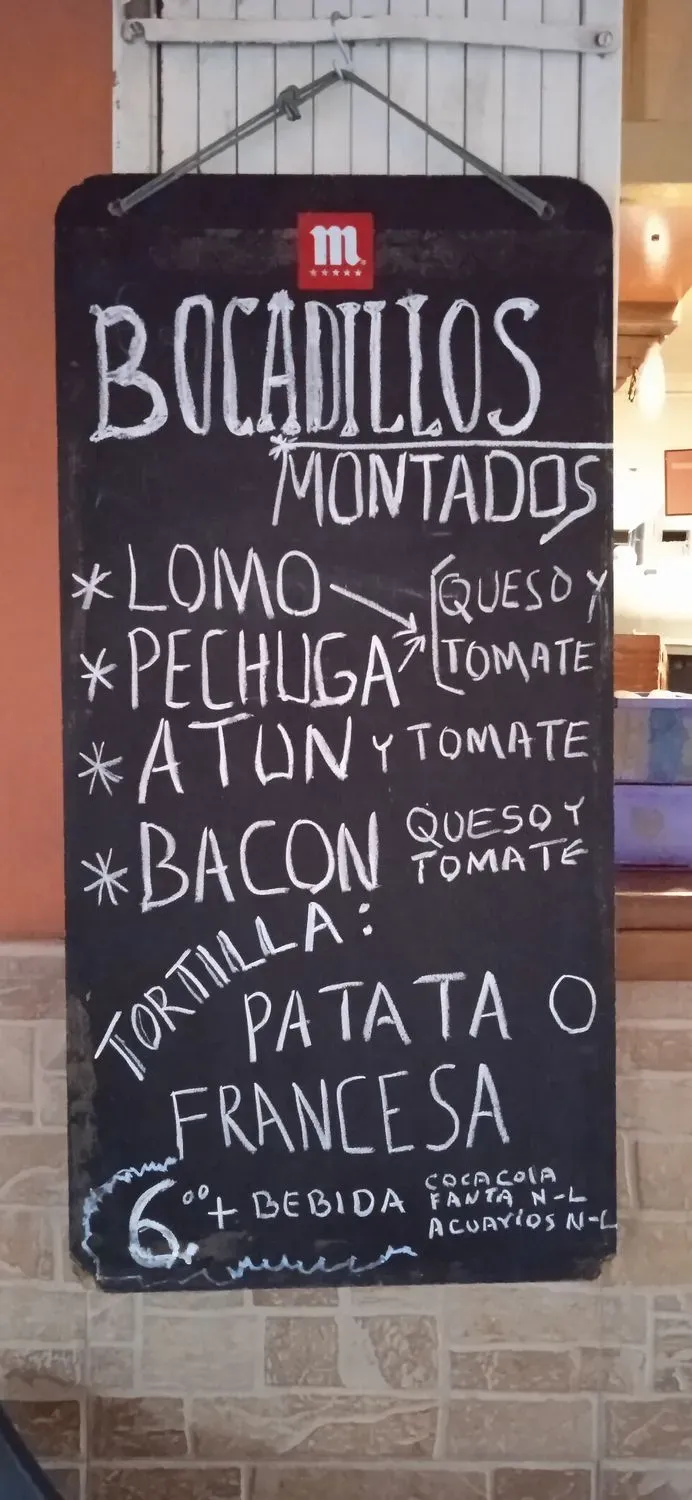 m
BOCADILLOS
*MONTADOS
* LOMO
QUESO Y
* PECHUGA
TOMATE
* ATUN Y TOMATE
* BACON QUESO Y
TOMATE
TORTILLA:
PATATA O
FRANCESA
6.00 + BEBIDA
COCACOlA
FANTA N-L
ACUARiOS N-L